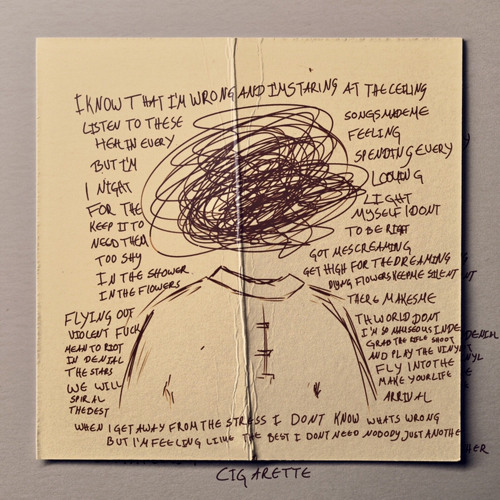 I KNOW THAT I'M WRONG AND I'M STARING AT THE CEILING
LISTEN TO THESE
HEAL IN EVERY
BUT I'M
I NIGHT
FOR THE
KEEP IT TO
NEED THEM
TOO SHY
IN THE SHOWER
IN THE FLOWERS
FLYING OUT
VIOLENT FUCK
MEAN TO RIOT
IN DENIAL
THE STARS
WE WILL
SPIRAL
THE BEST
SONGS MADE ME
FEELING
SPENDING EVERY
LOOKING
LIGHT
MYSELF I DONT
TO BE RIGHT
GOT ME SCREAMING
GET HIGH FOR THE DREAMING
DYING FLOWERS KEEP ME SILENT
MAKES ME
WORLD DONT
I'M SO IN DENIAL
GRAB THE RIFLE SHOOT
AND PLAY THE VINYL
FLY INTO THE
MAKE YOUR LIFE
ARRIVAL
WHEN I GET AWAY FROM THE STRESS I DONT KNOW WHATS WRONG
BUT I'M FEELING LIKE THE BEST I DONT NEED NOBODY JUST ANOTHER
CIGARETTE